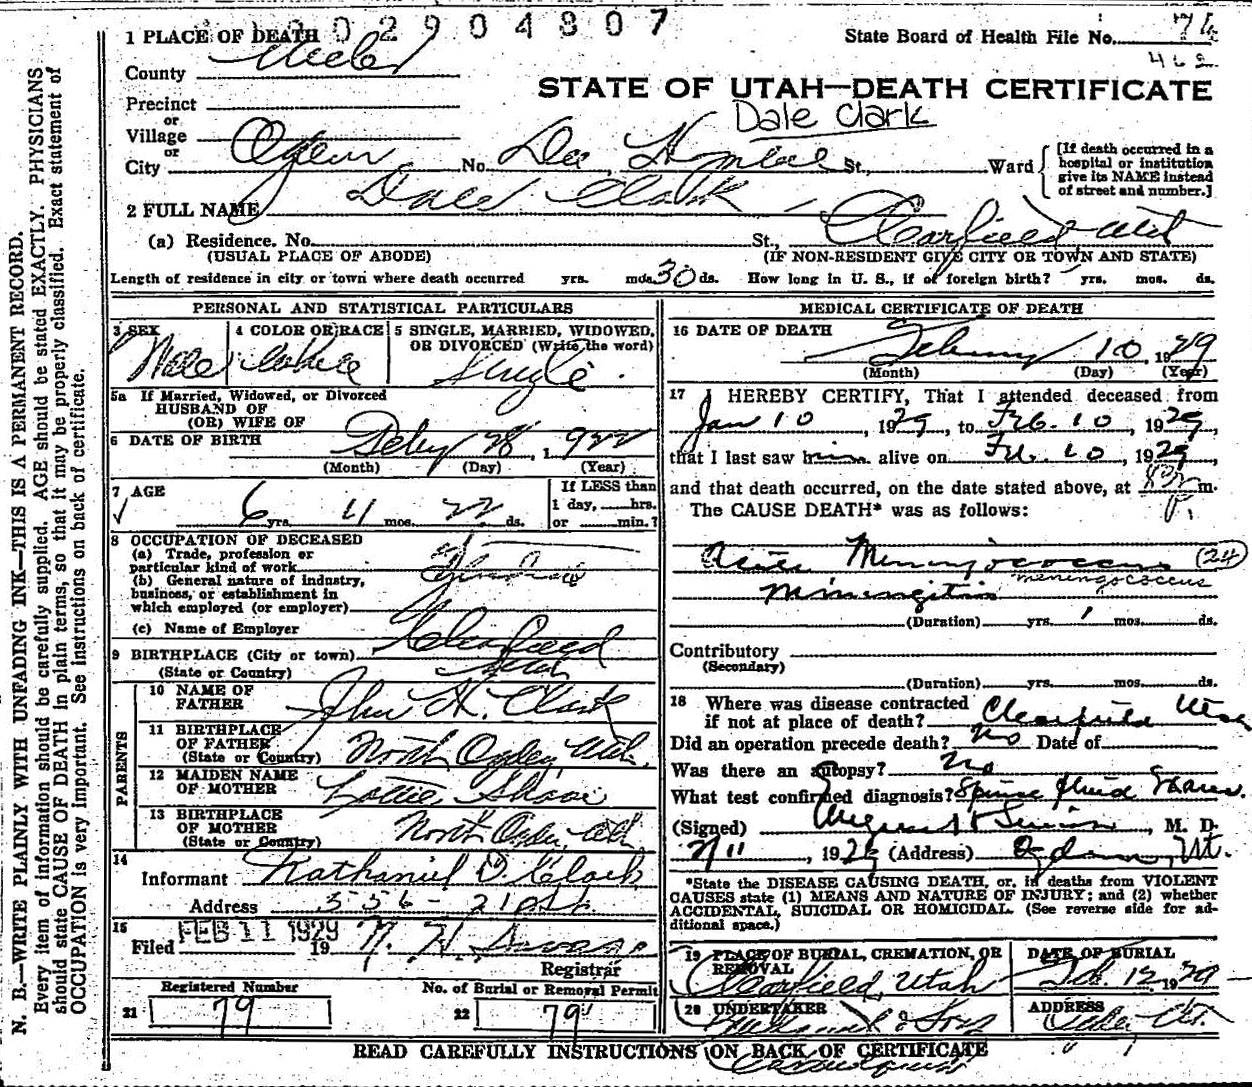 1 PLACE OF DEATH 002904807
State Board of Health File No. 74
462
County Weber
STATE OF UTAH—DEATH CERTIFICATE
Precinct
or
Village
Dale Clark
or
City Ogden No. Dee Hospital St., Ward
[If death occurred in a hospital or institution give its NAME instead of street and number.]
2 FULL NAME Dale Clark
(a) Residence. No. St., Clearfield Utah
(USUAL PLACE OF ABODE) (IF NON-RESIDENT GIVE CITY OR TOWN AND STATE)
Length of residence in city or town where death occurred yrs. mos. 30 ds. How long in U. S., if of foreign birth? yrs. mos. ds.
PERSONAL AND STATISTICAL PARTICULARS
3 SEX 4 COLOR OR RACE 5 SINGLE, MARRIED, WIDOWED, OR DIVORCED (Write the word)
Male white Single.
5a If Married, Widowed, or Divorced
HUSBAND OF
(OR) WIFE OF
6 DATE OF BIRTH 28, 1922
(Month) (Day) (Year)
7 AGE
6 yrs. 11 mos. 22 ds.
If LESS than
1 day, hrs.
or min.?
8 OCCUPATION OF DECEASED
(a) Trade, profession or
particular kind of work
(b) General nature of industry,
business, or establishment in
which employed (or employer)
(c) Name of Employer
9 BIRTHPLACE (City or town) Clearfield
(State or Country) Utah
PARENTS
10 NAME OF
FATHER John H. Clark
11 BIRTHPLACE
OF FATHER
(State or Country) North Ogden, Utah.
12 MAIDEN NAME
OF MOTHER Lottie
13 BIRTHPLACE
OF MOTHER
(State or Country) North Ogden, Utah
14
Informant Nathaniel D. Clark
Address 336 - 21st St.
15
Filed FEB 11 1929 19
Registrar
Registered Number No. of Burial or Removal Permit
21 79 22 79
MEDICAL CERTIFICATE OF DEATH
16 DATE OF DEATH
10, 1929
(Month) (Day) (Year)
17 I HEREBY CERTIFY, That I attended deceased from
Jan 10, 1929, to Feb. 10, 1929,
that I last saw him alive on Feb. 10, 1929,
and that death occurred, on the date stated above, at P. m.
The CAUSE DEATH* was as follows:
Acute Meningococcus (24)
meningococcus
Meningitis
(Duration) yrs. 1 mos. ds.
Contributory
(Secondary)
(Duration) yrs. mos. ds.
18 Where was disease contracted
if not at place of death? Clearfield Utah
Did an operation precede death? No Date of
Was there an autopsy? No
What test confirmed diagnosis? Spinal fluid
(Signed), M. D.
2/11, 1929 (Address) Ogden, Ut.
*State the DISEASE CAUSING DEATH, or, in deaths from VIOLENT
CAUSES state (1) MEANS AND NATURE OF INJURY; and (2) whether
ACCIDENTAL, SUICIDAL OR HOMICIDAL. (See reverse side for ad-
ditional space.)
19 PLACE OF BURIAL, CREMATION, OR REMOVAL DATE OF BURIAL
Clearfield, Utah Feb. 12, 1929
20 UNDERTAKER ADDRESS
& Sons Ogden Ut.
READ CAREFULLY INSTRUCTIONS ON BACK OF CERTIFICATE
N. B.—WRITE PLAINLY WITH UNFADING INK—THIS IS A PERMANENT RECORD.
Every item of information should be carefully supplied. AGE should be stated EXACTLY. PHYSICIANS
should state CAUSE OF DEATH in plain terms, so that it may be properly classified. Exact statement of
OCCUPATION is very important. See instructions on back of certificate.